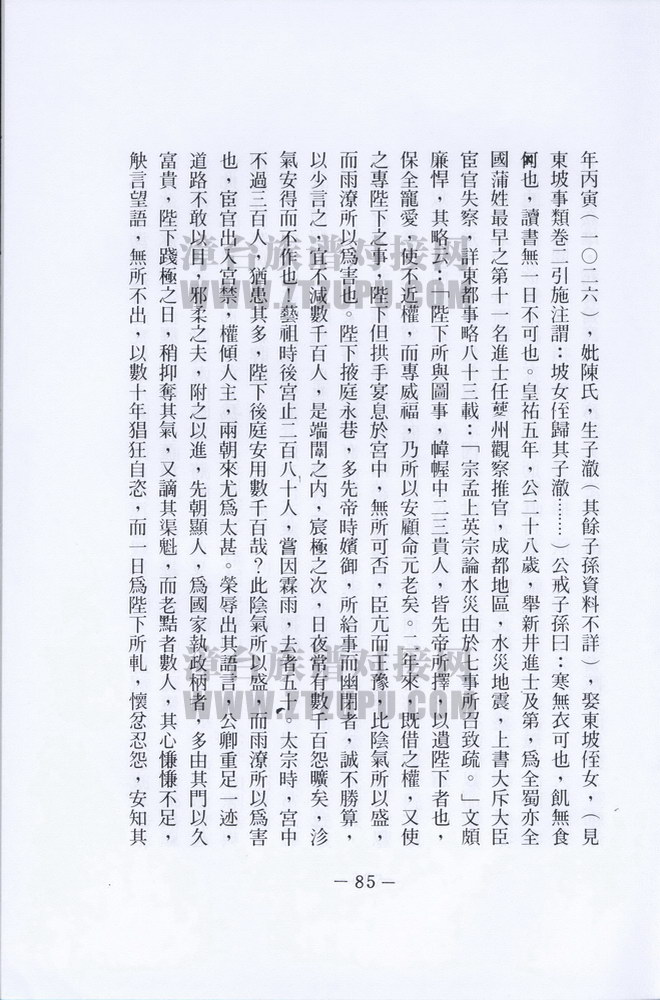 年丙寅（一〇二六），妣陳氏，生子澈（其餘子孫資料不詳），娶東坡侄女，（見
東坡事類卷二引施注謂：坡女侄歸其子澈……）公戒子孫曰：寒無衣可也，飢無食
何也，讀書無一日不可也。皇祐五年，公二十八歲，舉新井進士及第，爲全蜀亦全
國蒲姓最早之第十一名進士任夔州觀察推官，成都地區，水災地震，上書大斥大臣
宦官失察，詳東都事略八十三載：「宗孟上英宗論水災由於七事所召致疏。」文頗
廉悍，其略云：「陛下所與圖事，幃幄中二三貴人，皆先帝所擇，以遺陛下者也，
保全寵愛，使不近權，而專威福，乃所以安顧命元老矣。二年來，既借之權，又使
之專陛下之事，陛下但拱手宴息於宮中，無所可否，臣亢而王豫，比陰氣所以盛，
而雨潦所以爲害也。陛下掖庭永巷，多先帝時嬪御，所給事而幽閉者，誠不勝算，
以少言之，宜不減數千百人，是端闈之内，宸極之次，日夜常有數千百怨曠矣，沴
氣安得而不作也，藝祖時後宮止二百八十人，嘗因霖雨，去者五十。太宗時，宮中
不過三百人，猶患其多，陛下後庭安用數千百哉？此陰氣所以盛，而雨潦所以爲害
也，宦官出入宮禁，權傾人主，兩朝來尤爲太甚。榮辱出其語言，公卿重足一迹，
道路不敢以目，邪柔之夫，附之以進，先朝顯人，爲國家執政柄者，多由其門以久
富貴，陛下踐極之日，稍抑奪其氣，又謫其渠魁，而老黠者數人，其心慊慊不足，
觖言望語，無所不出，以數十年猖狂自恣，而一日爲陛下所軋，懷忿忍怨，安知其
－85－
漳台族谱对接网
WWW.ZTZUPU.COM
漳台族谱对接网
WWW.ZTZUPU.COM